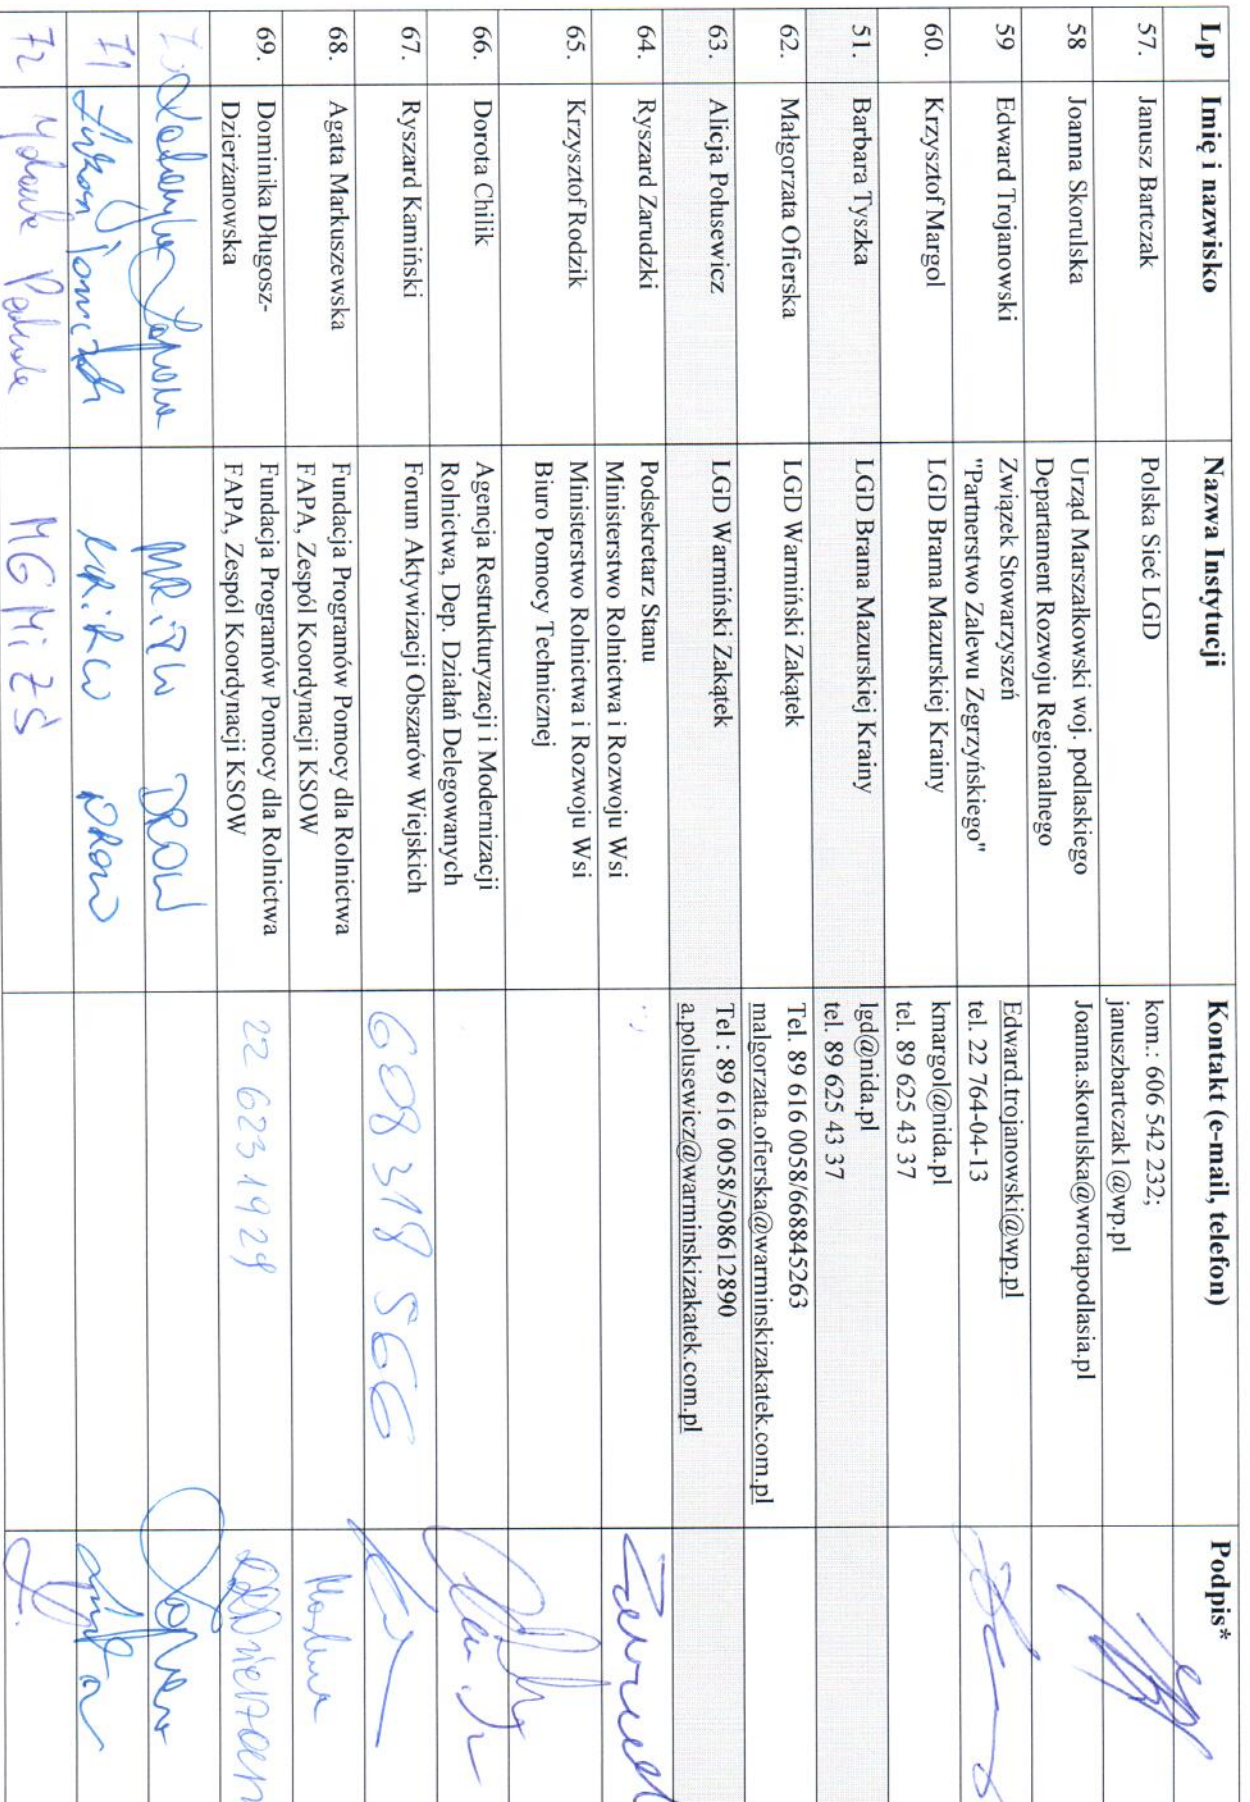 Lp Imię i nazwisko Nazwa Instytucji Kontakt (e-mail, telefon) Podpis*
57. Janusz Bartczak Polska Sieć LGD kom.: 606 542 232;
januszbartczak1@wp.pl
58 Joanna Skorulska Urząd Marszałkowski woj. podlaskiego Joanna.skorulska@wrotapodlasia.pl
Departament Rozwoju Regionalnego
59 Edward Trojanowski Związek Stowarzyszeń Edward.trojanowski@wp.pl
"Partnerstwo Zalewu Zegrzyńskiego" tel. 22 764-04-13
60. Krzysztof Margol LGD Brama Mazurskiej Krainy kmargol@nida.pl
tel. 89 625 43 37
51. Barbara Tyszka LGD Brama Mazurskiej Krainy lgd@nida.pl
tel. 89 625 43 37
62. Małgorzata Ofierska LGD Warmiński Zakątek Tel. 89 616 0058/668845263
malgorzata.ofierska@warminskizakatek.com.pl
63. Alicja Połusewicz LGD Warmiński Zakątek Tel : 89 616 0058/508612890
a.polusewicz@warminskizakatek.com.pl
64. Ryszard Zarudzki Podsekretarz Stanu
Ministerstwo Rolnictwa i Rozwoju Wsi
65. Krzysztof Rodzik Ministerstwo Rolnictwa i Rozwoju Wsi
Biuro Pomocy Technicznej
66. Dorota Chilik Agencja Restrukturyzacji i Modernizacji
Rolnictwa, Dep. Działań Delegowanych
67. Ryszard Kamiński Forum Aktywizacji Obszarów Wiejskich 608 318 566
68. Agata Markuszewska Fundacja Programów Pomocy dla Rolnictwa
FAPA, Zespól Koordynacji KSOW
69. Dominika Długosz- Fundacja Programów Pomocy dla Rolnictwa 22 623 1929
Dzierżanowska FAPA, Zespól Koordynacji KSOW
MRiRW DROW
71 MRiRW DROW
72 MGMiŻŚ